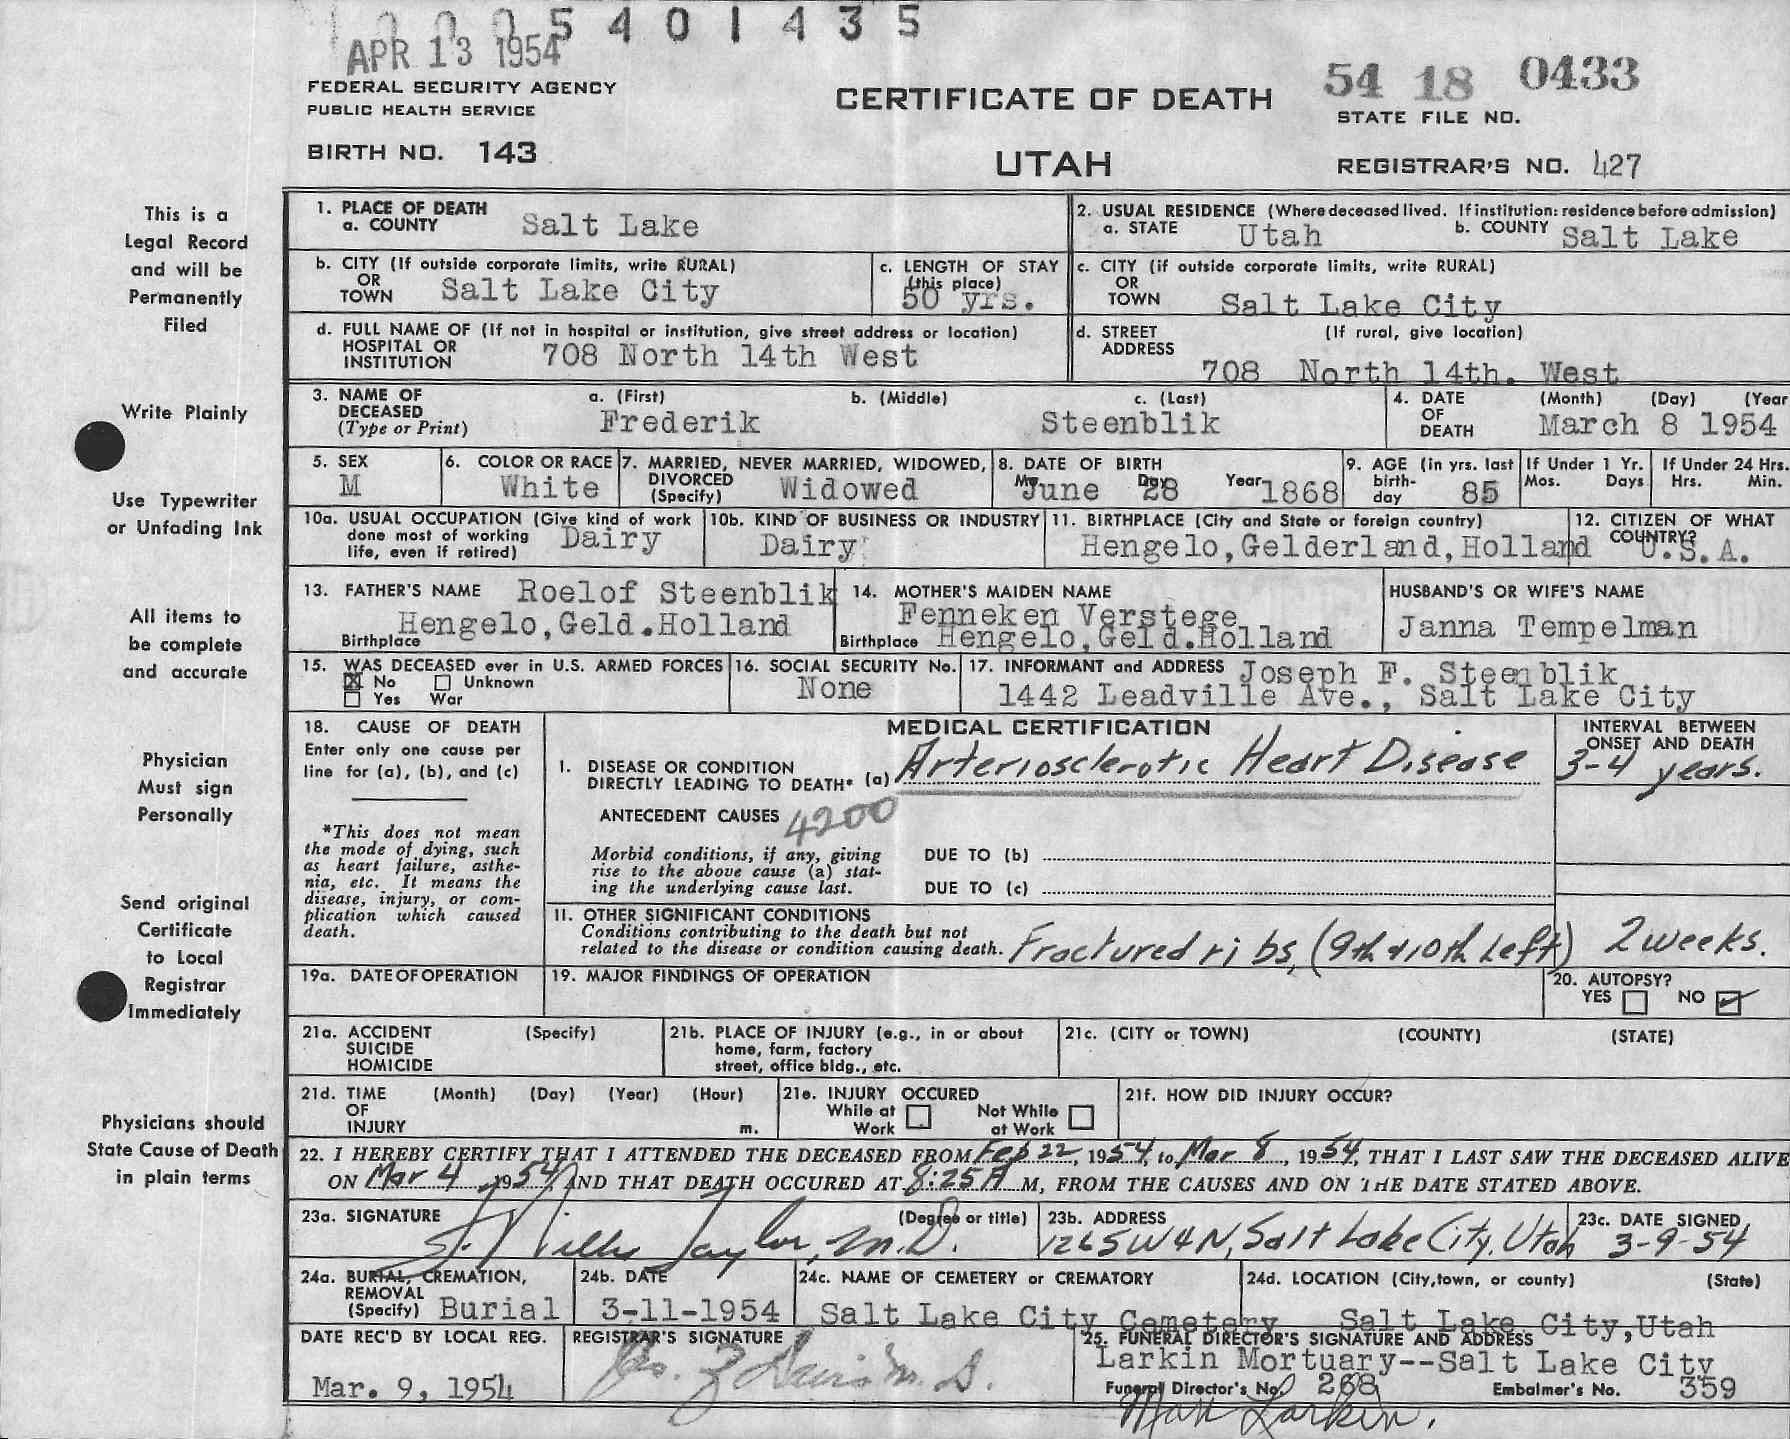 5401435
APR 13 1954
FEDERAL SECURITY AGENCY
PUBLIC HEALTH SERVICE
BIRTH NO. 143
CERTIFICATE OF DEATH
UTAH
54 18 0433
STATE FILE NO.
REGISTRAR'S NO. 427
This is a
Legal Record
and will be
Permanently
Filed
Write Plainly
Use Typewriter
or Unfading Ink
All items to
be complete
and accurate
Physician
Must sign
Personally
Send original
Certificate
to Local
Registrar
Immediately
Physicians should
State Cause of Death
in plain terms
1. PLACE OF DEATH
a. COUNTY Salt Lake
2. USUAL RESIDENCE (Where deceased lived. If institution: residence before admission)
a. STATE Utah b. COUNTY Salt Lake
b. CITY (If outside corporate limits, write RURAL)
OR
TOWN Salt Lake City
c. LENGTH OF STAY
(this place)
50 yrs.
c. CITY (if outside corporate limits, write RURAL)
OR
TOWN Salt Lake City
d. FULL NAME OF (If not in hospital or institution, give street address or location)
HOSPITAL OR
INSTITUTION 708 North 14th West
d. STREET (If rural, give location)
ADDRESS
708 North 14th. West
3. NAME OF a. (First) b. (Middle) c. (Last)
DECEASED
(Type or Print) Frederik Steenblik
4. DATE (Month) (Day) (Year
OF
DEATH March 8 1954
5. SEX
M
6. COLOR OR RACE
White
7. MARRIED, NEVER MARRIED, WIDOWED,
DIVORCED
(Specify) Widowed
8. DATE OF BIRTH
Mo. June Day 28 Year 1868
9. AGE (in yrs. last
birth-
day 85
If Under 1 Yr.
Mos. Days
If Under 24 Hrs.
Hrs. Min.
10a. USUAL OCCUPATION (Give kind of work
done most of working
life, even if retired) Dairy
10b. KIND OF BUSINESS OR INDUSTRY
Dairy
11. BIRTHPLACE (City and State or foreign country)
Hengelo,Gelderland,Holland
12. CITIZEN OF WHAT
COUNTRY?
U.S.A.
13. FATHER'S NAME Roelof Steenblik
Birthplace Hengelo,Geld.Holland
14. MOTHER'S MAIDEN NAME
Fenneken Verstege
Birthplace Hengelo,Geld.Holland
HUSBAND'S OR WIFE'S NAME
Janna Tempelman
15. WAS DECEASED ever in U.S. ARMED FORCES
No Unknown
Yes War
16. SOCIAL SECURITY No.
None
17. INFORMANT and ADDRESS Joseph F. Steenblik
1442 Leadville Ave., Salt Lake City
18. CAUSE OF DEATH
Enter only one cause per
line for (a), (b), and (c)
*This does not mean
the mode of dying, such
as heart failure, asthe-
nia, etc. It means the
disease, injury, or com-
plication which caused
death.
MEDICAL CERTIFICATION
I. DISEASE OR CONDITION
DIRECTLY LEADING TO DEATH* (a) Arteriosclerotic Heart Disease
INTERVAL BETWEEN
ONSET AND DEATH
3-4 years.
ANTECEDENT CAUSES 4200
Morbid conditions, if any, giving
rise to the above cause (a) stat-
ing the underlying cause last.
DUE TO (b)
DUE TO (c)
II. OTHER SIGNIFICANT CONDITIONS
Conditions contributing to the death but not
related to the disease or condition causing death. Fractured ribs, (9th & 10th Left) 2 weeks.
19a. DATE OF OPERATION
19. MAJOR FINDINGS OF OPERATION
20. AUTOPSY?
YES NO
21a. ACCIDENT (Specify)
SUICIDE
HOMICIDE
21b. PLACE OF INJURY (e.g., in or about
home, farm, factory
street, office bldg., etc.
21c. (CITY or TOWN) (COUNTY) (STATE)
21d. TIME (Month) (Day) (Year) (Hour)
OF
INJURY m.
21e. INJURY OCCURED
While at Work
Not While at Work
21f. HOW DID INJURY OCCUR?
22. I HEREBY CERTIFY THAT I ATTENDED THE DECEASED FROM Feb 22, 1954, to Mar 8, 1954, THAT I LAST SAW THE DECEASED ALIVE
ON Mar 4, 1954, AND THAT DEATH OCCURED AT 8:25A M, FROM THE CAUSES AND ON THE DATE STATED ABOVE.
23a. SIGNATURE (Degree or title)
Taylor, M.D.
23b. ADDRESS
1265 W 4 N, Salt Lake City, Utah
23c. DATE SIGNED
3-9-54
24a. BURIAL, CREMATION,
REMOVAL
(Specify) Burial
24b. DATE
3-11-1954
24c. NAME OF CEMETERY or CREMATORY
Salt Lake City Cemetery
24d. LOCATION (City,town, or county) (State)
Salt Lake City,Utah
DATE REC'D BY LOCAL REG.
Mar. 9, 1954
REGISTRAR'S SIGNATURE
25. FUNERAL DIRECTOR'S SIGNATURE AND ADDRESS
Larkin Mortuary--Salt Lake City
Funeral Director's No. 268 Embalmer's No. 359
Larkin.